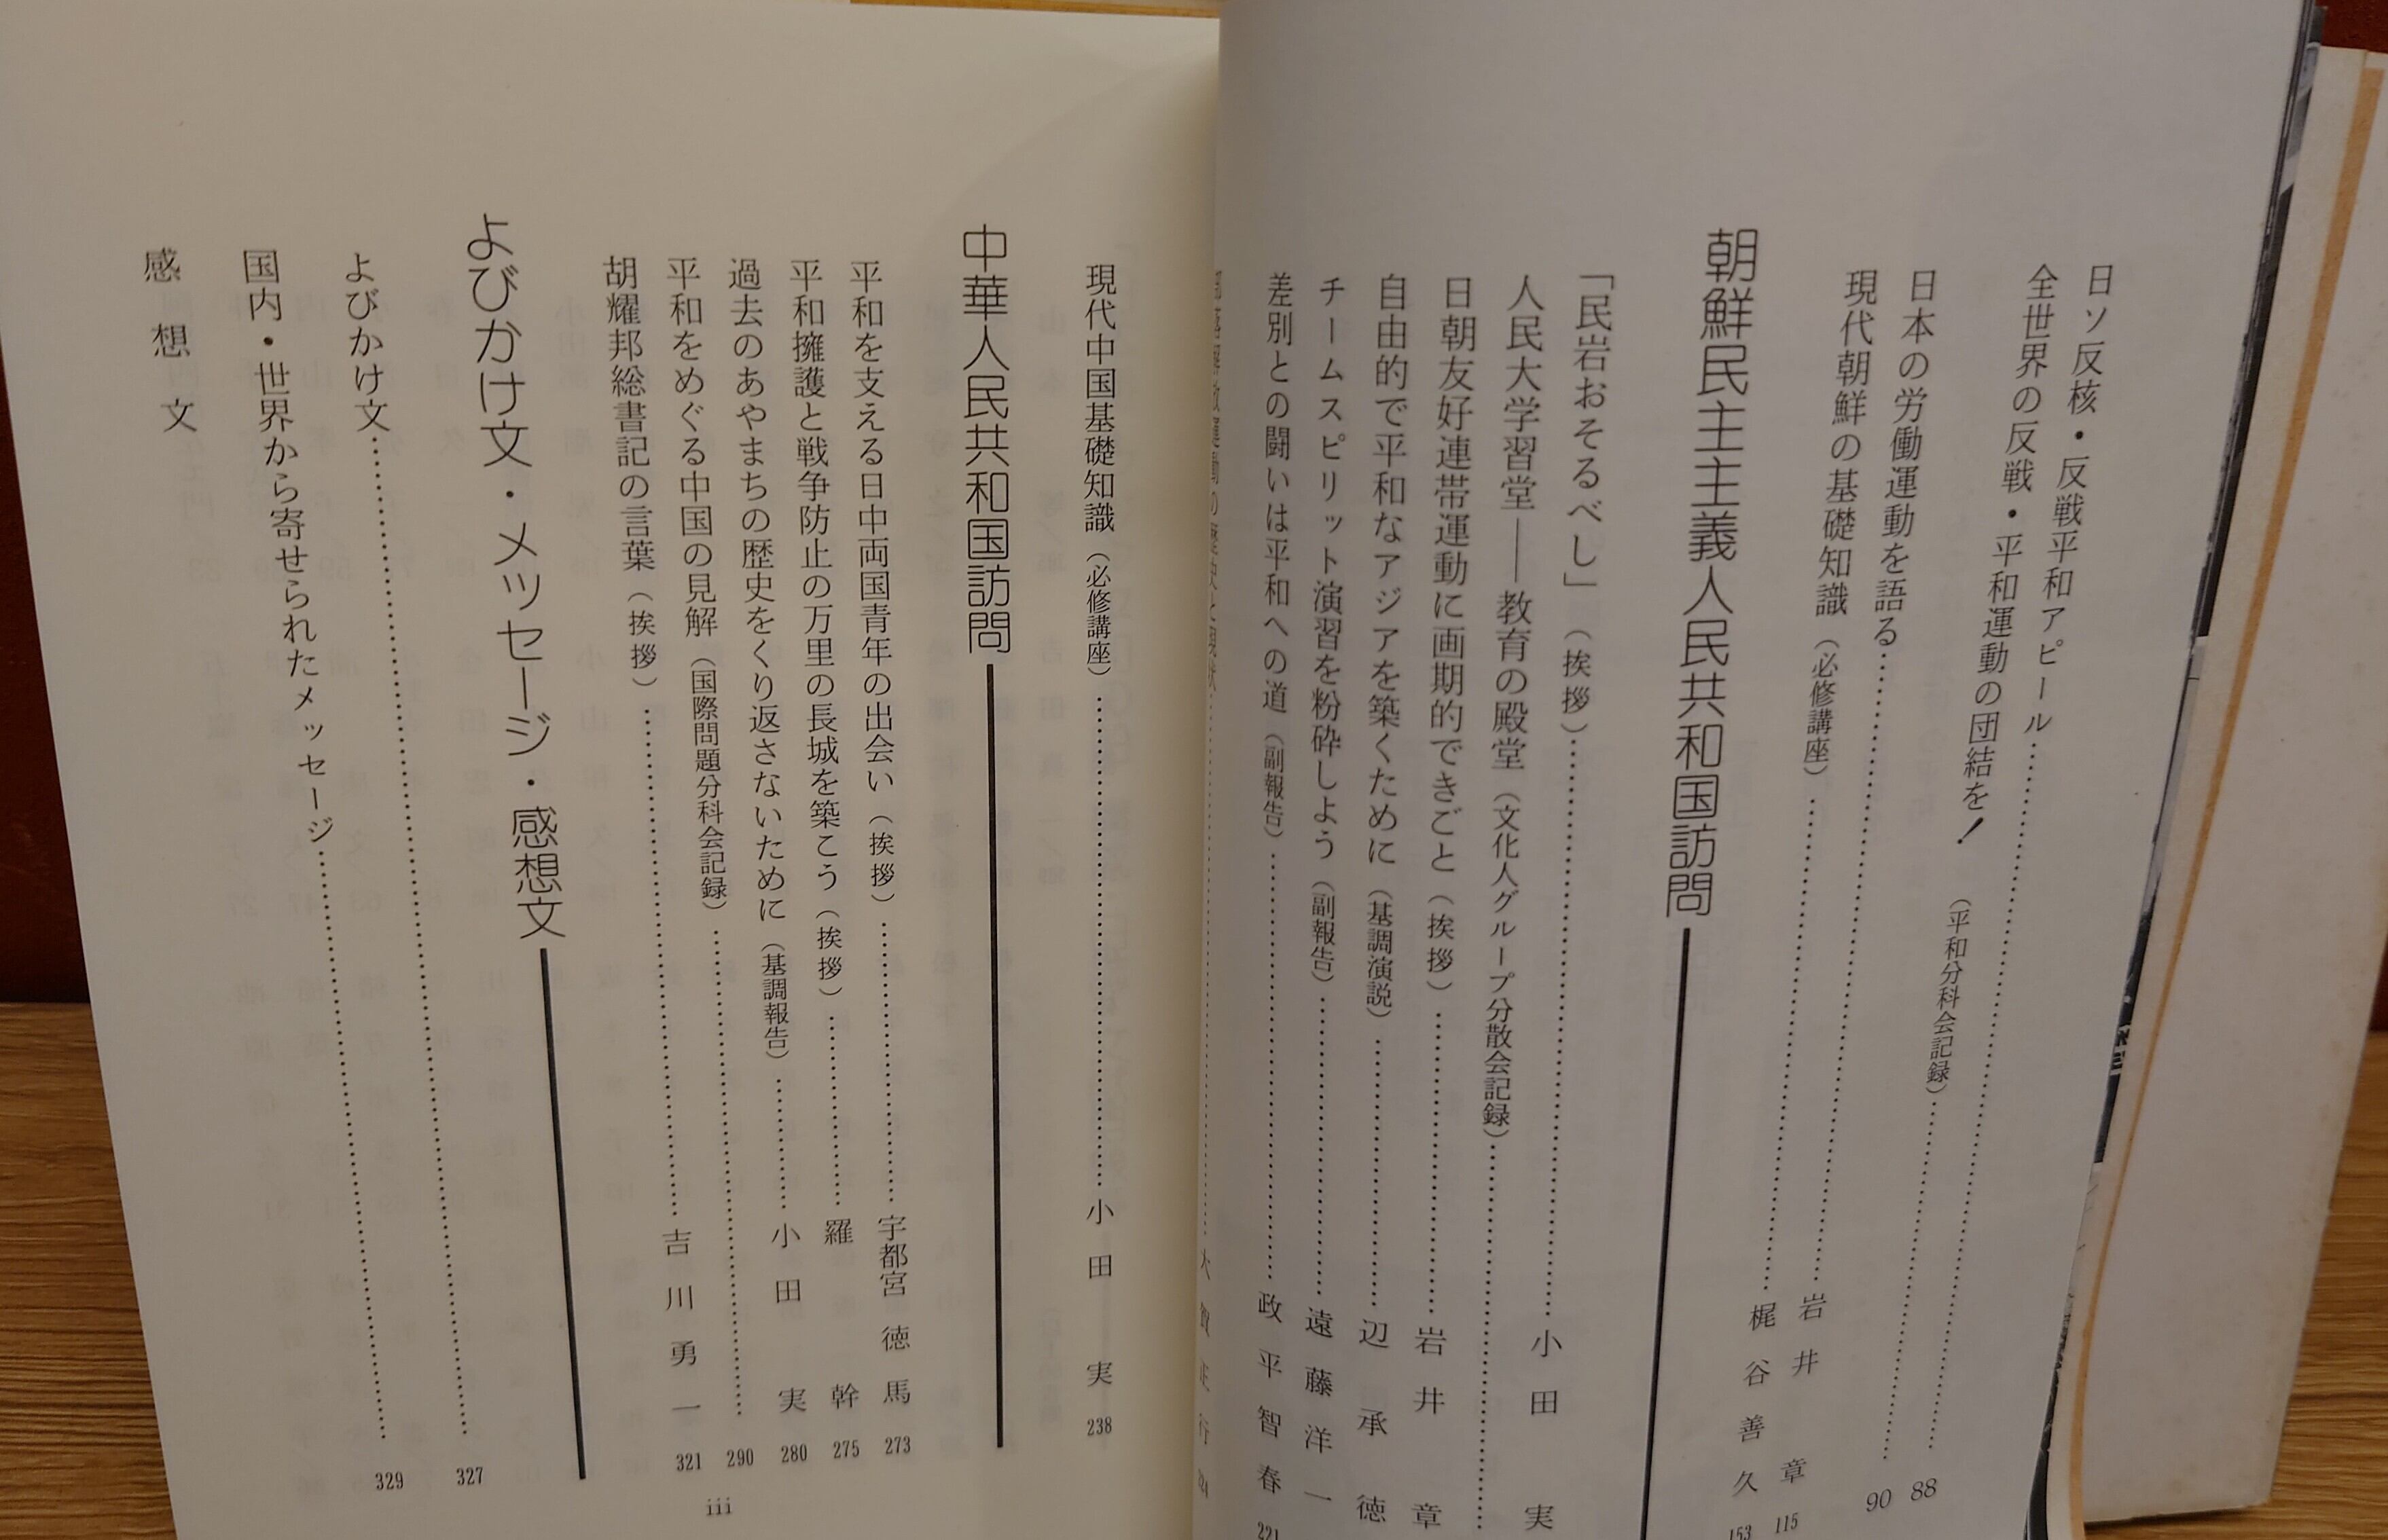 日ソ反核・反戦平和アピール 88
全世界の反戦・平和運動の団結を！（平和分科会記録） 90
日本の労働運動を語る 岩井章 115
現代朝鮮の基礎知識（必修講座） 梶谷善久 153
朝鮮民主主義人民共和国訪問
「民岩おそるべし」（挨拶） 小田実
人民大学習堂――教育の殿堂（文化人グループ分散会記録）
日朝友好連帯運動に画期的できごと（挨拶） 岩井章
自由的で平和なアジアを築くために（基調演説） 辺承徳
チームスピリット演習を粉砕しよう（副報告） 遠藤洋一
差別との闘いは平和への道（副報告） 政平智春 221
現代中国基礎知識（必修講座） 小田実 238
中華人民共和国訪問
平和を支える日中両国青年の出会い（挨拶） 宇都宮徳馬 273
平和擁護と戦争防止の万里の長城を築こう（挨拶） 羅幹 275
過去のあやまちの歴史をくり返さないために（基調報告） 小田実 280
平和をめぐる中国の見解（国際問題分科会記録） 290
胡耀邦総書記の言葉（挨拶） 吉川勇一 321
よびかけ文・メッセージ・感想文
よびかけ文 327
国内・世界から寄せられたメッセージ 329
感想文
iii